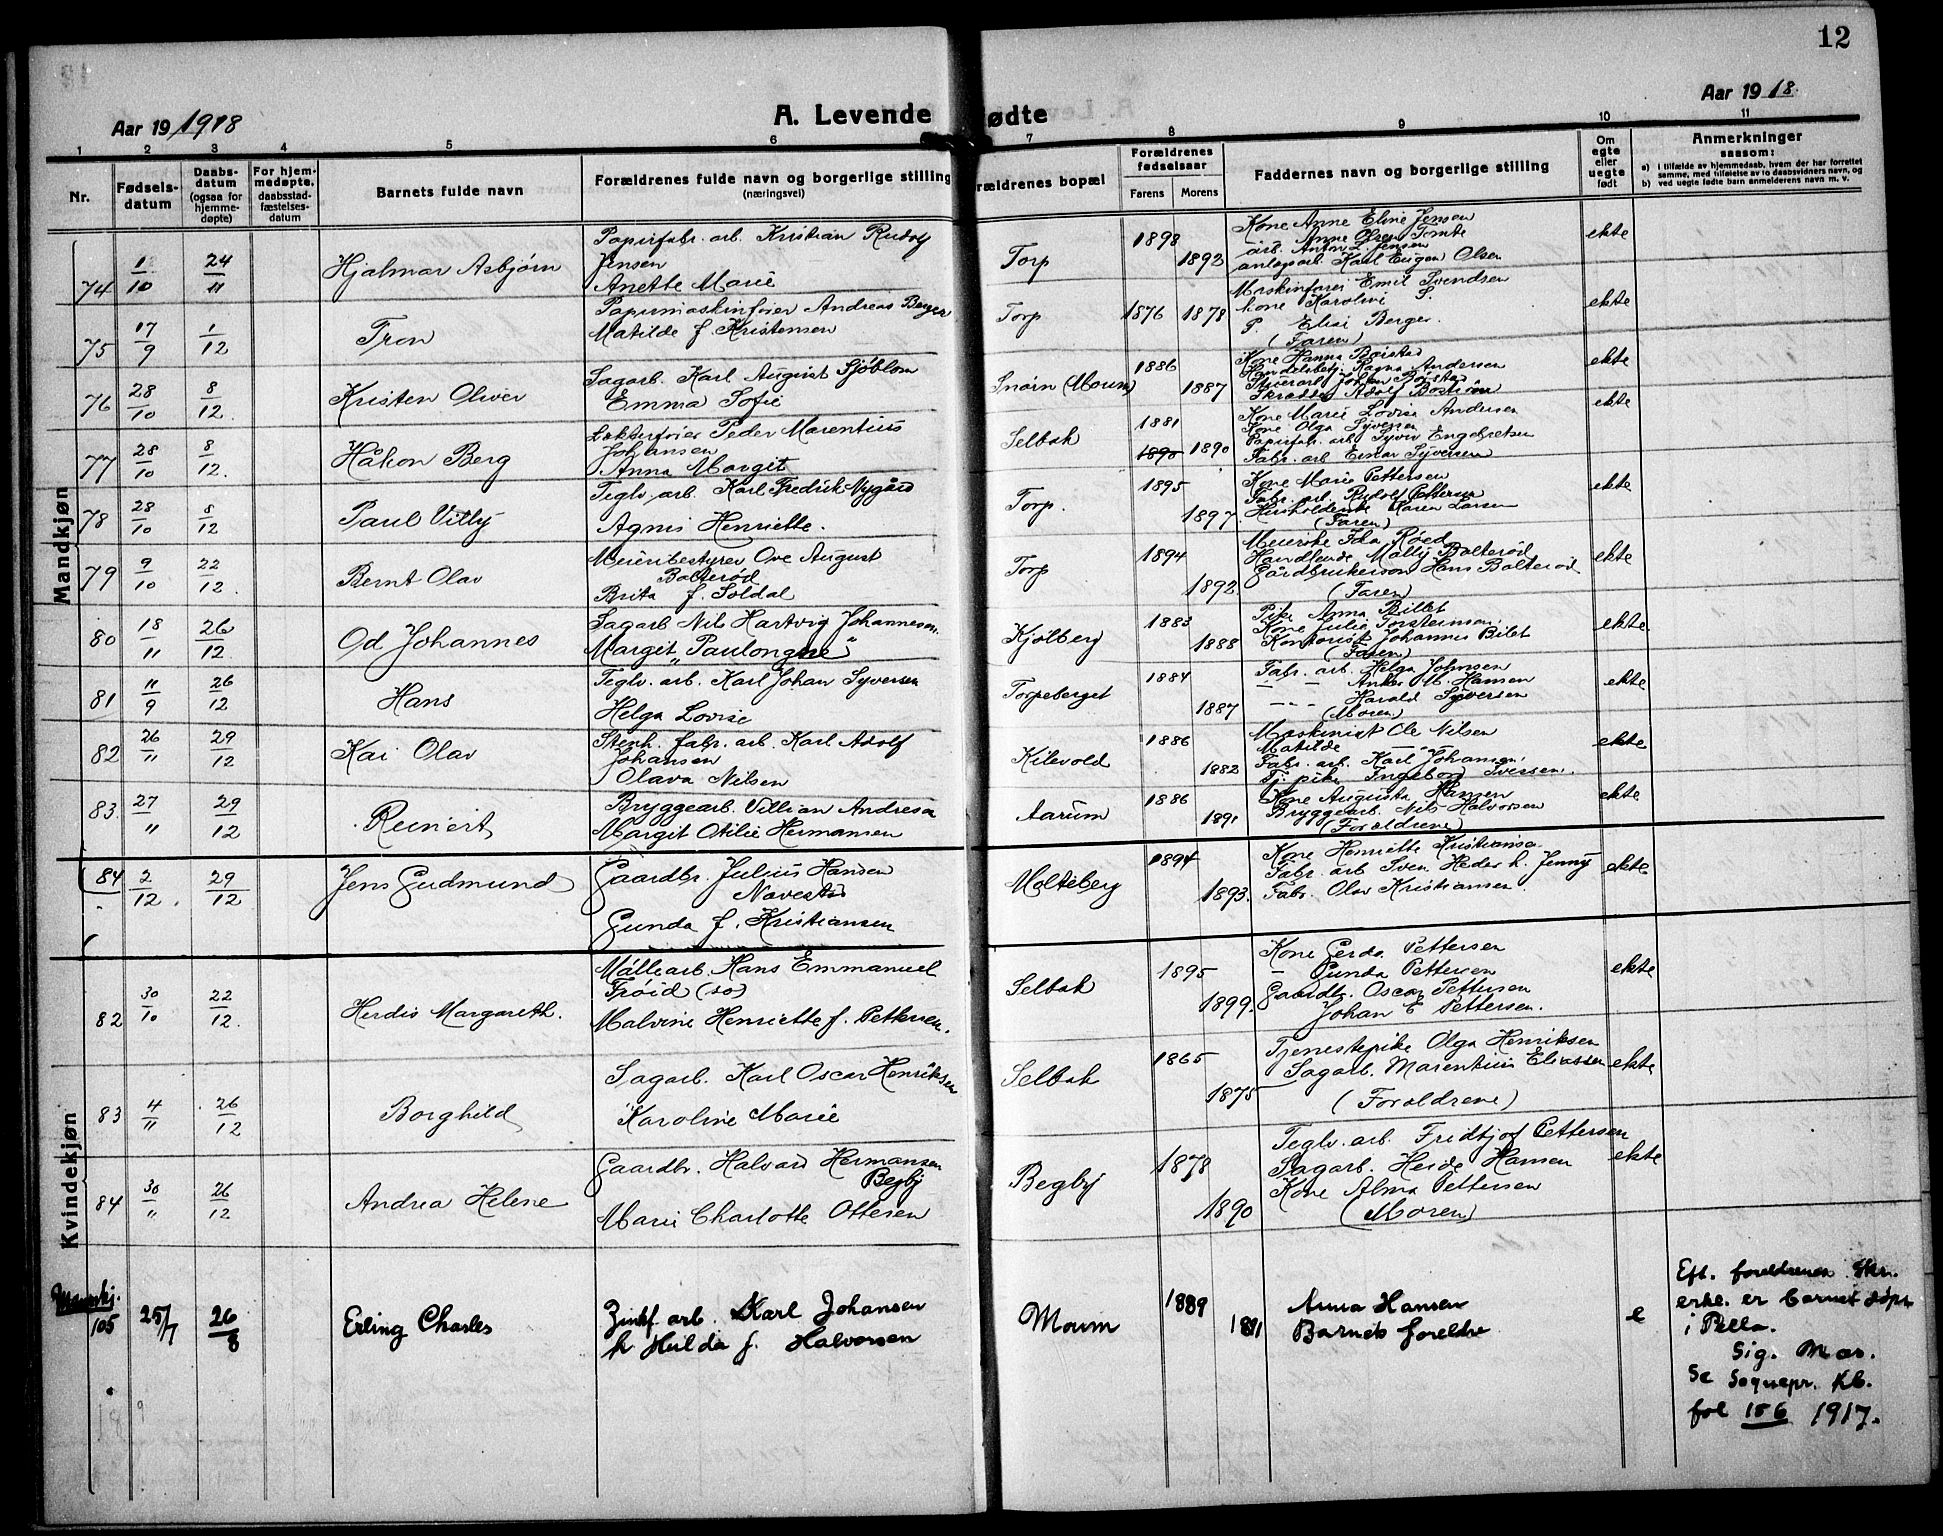 12
Aar 19 1918
A. Levende fødte
Aar 1918.
1 2 3 4 5 6 7 8 9 10 11
Nr.
Fødsels-
datum
Daabs-
datum
(ogsaa for
hjemme-
døpte)
For hjem-
medøpte,
daabsstad-
fæstelses-
datum
Barnets fulde navn
Forældrenes fulde navn og borgerlige stilling
(næringsvei)
Forældrenes bopæl
Forældrenes
fødselsaar
Farens Morens
Faddernes navn og borgerlige stilling
Om
egte
eller
uegte
født
Anmerkninger
saasom:
a) i tilfælde av hjemmedaab, hvem der har forrettet
samme, med tilføielse av to daabsvidners navn, og
b) ved uegte fødte barn anmelderens navn m. v.
Mandkjøn
74 1/10 24/11 Hjalmar Asbjørn
Papirfabr. arb. Kristian Rudolf
Jensen
Anette Marie
Torp 1898 1892
Kone Anne Eline Jensen
Anne Olsen Tomte
arb. Anton L. Jensen
anlægsarb. Karl Eugen Olsen
ekte
75 17/9 1/12 Tron
Papirmaskinfører Andreas Berger
Matilde f. Kristensen
Torp 1876 1878
Maskinfører Emil Svendsen
kone Karoline S.
P. Elise Berger.
(Faren)
ekte
76 28/10 8/12. Kristen Oliver
Sagarb. Karl August Sjöblom
Emma Sofie
Snorn (Moum) 1886 1887
Kone Hanna Borstad
Andersen
Johan Borstad
Adolf Boström
ekte
77 28/10 8/12. Håkon Berg
Lokterfører Peder Marentius
Johansen
Anna Margit
Selbak 1881 1890 1890
Kone Marie Lovise Andersen
Kone Olga Syversen
Papirfabr. arb. Syver Engebretsen
Fabr. arb. Einar Syversen
ekte
78 28/10 8/12 Paul Villy
Teglv. arb. Karl Fredrik Nygård
Agnes Henriette.
Torp. 1895 1897.
Kone Marie Pettersen
Fabr. arb. Rudolf Pettersen
Husholderske Karen Larsen
(Faren)
ekte
79 9/10 22/12. Bernt Olav
Meieribestyrer Ove August
Bolterød
Brita f. Soldal
Torp 1894 1892.
Meierske Ida Røed
Handlende Molly Bolterød
Gårdbrukersøn Hans Bolterød
(Faren)
ekte
80 18/11 26/12. Od Johannes
Sagarb. Nils Hartvig Johannesen.
Margit „Paulongne“
Kjølberg 1883 1888
Pike Anna Billet
Kone Julie Torsteinsen
Kontorist Johannes Bilet
(Faren)
ekte.
81 11/9 26/12 Hans
Teglv. arb. Karl Johan Syversen
Helga Lovise
Torpeberget 1884 1887
Fabr. arb. Helga Johnsen
— — Anker M. Hansen
- - - Harald Syversen
(Moren)
ekte
82 26/11 29/12 Kai Olav
Stenh. fabr. arb. Karl Adolf
Johansen
Olava Nilsen
Kilevold 1886 1882
Maskinist Ole Nilsen
Matilde —
Fabr. arb. Karl Johansen.
Tj. pike Ingeborg Iversen.
ekte
83. 27/11 29/12 Reinert
Bryggearb. Villian Andresen
Margit Otilie Hermansen
Aarum 1886 1891
Kone Augusta Hansen
Bryggearb. Nils Halvorsen
(Foreldrene)
ekte
84 2/12. 29/12 Jens Gudmund
Gaardbr. Julius Hansen
Navestad
Gunda f. Kristiansen
Molteberg 1894 1893.
Kone Henriette Kristiansen
Fabr. arb Sven Heder k. Jenny
Fabr. Olav Kristiansen.
ekte
Kvindekjøn
82 30/10 22/12. Herdis Margareth.
Mållearb. Hans Emmanuel
Frøid (so)
Malvine Henriette f. Pettersen.
Selbak 1895 1899.
Kone Gerda Pettersen
— Gunda Pettersen
Gaardbr. Oscar Pettersen
Johan E Pettersen.
ekte
83 4/11 26/12 Borghild
Sagarb. Karl Oscar Henriksen
Karoline Marie
Selbak 1865 1875
Tjenestepike Olga Henriksen
Sagarb. Marentius Eliassen
(Foreldrene)
ekte
84 30/11 26/12 Andrea Helene
Gaardbr. Halvard Hermansen
Begby
Marie Charlotte Ottesen
Begby 1878 1890
Teglv. arb. Fridtjof Pettersen
Sagarb. Heide Hansen
Kone Alma Pettersen
(Moren)
ekte
Mannkj.
105 25/7 26/8 Erling Charles
Zinkf arb. Karl Johansen
h Hulda f. Halvorsen
Moum 1889 1891
Anna Hansen
Barnets foreldre
e
Eft. foreldrenes skr.
erkl. er barnet døpt
i Pella.
Sig. Mos.
Se Sognepr. Kb.
fol 106 1917.